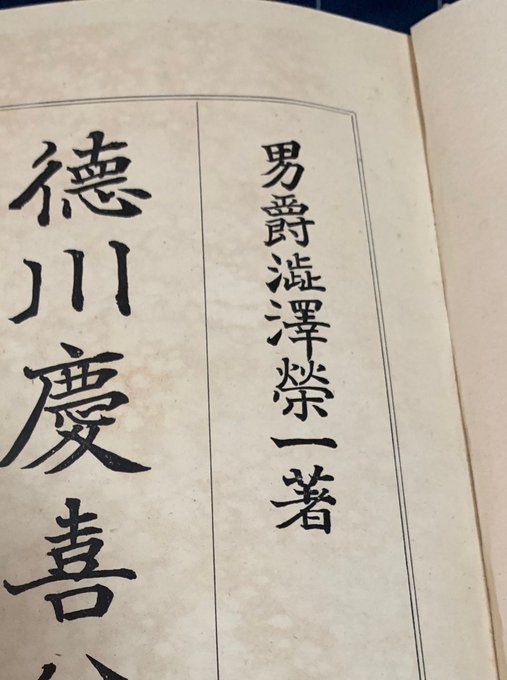 男爵澁澤榮一著
德川慶喜